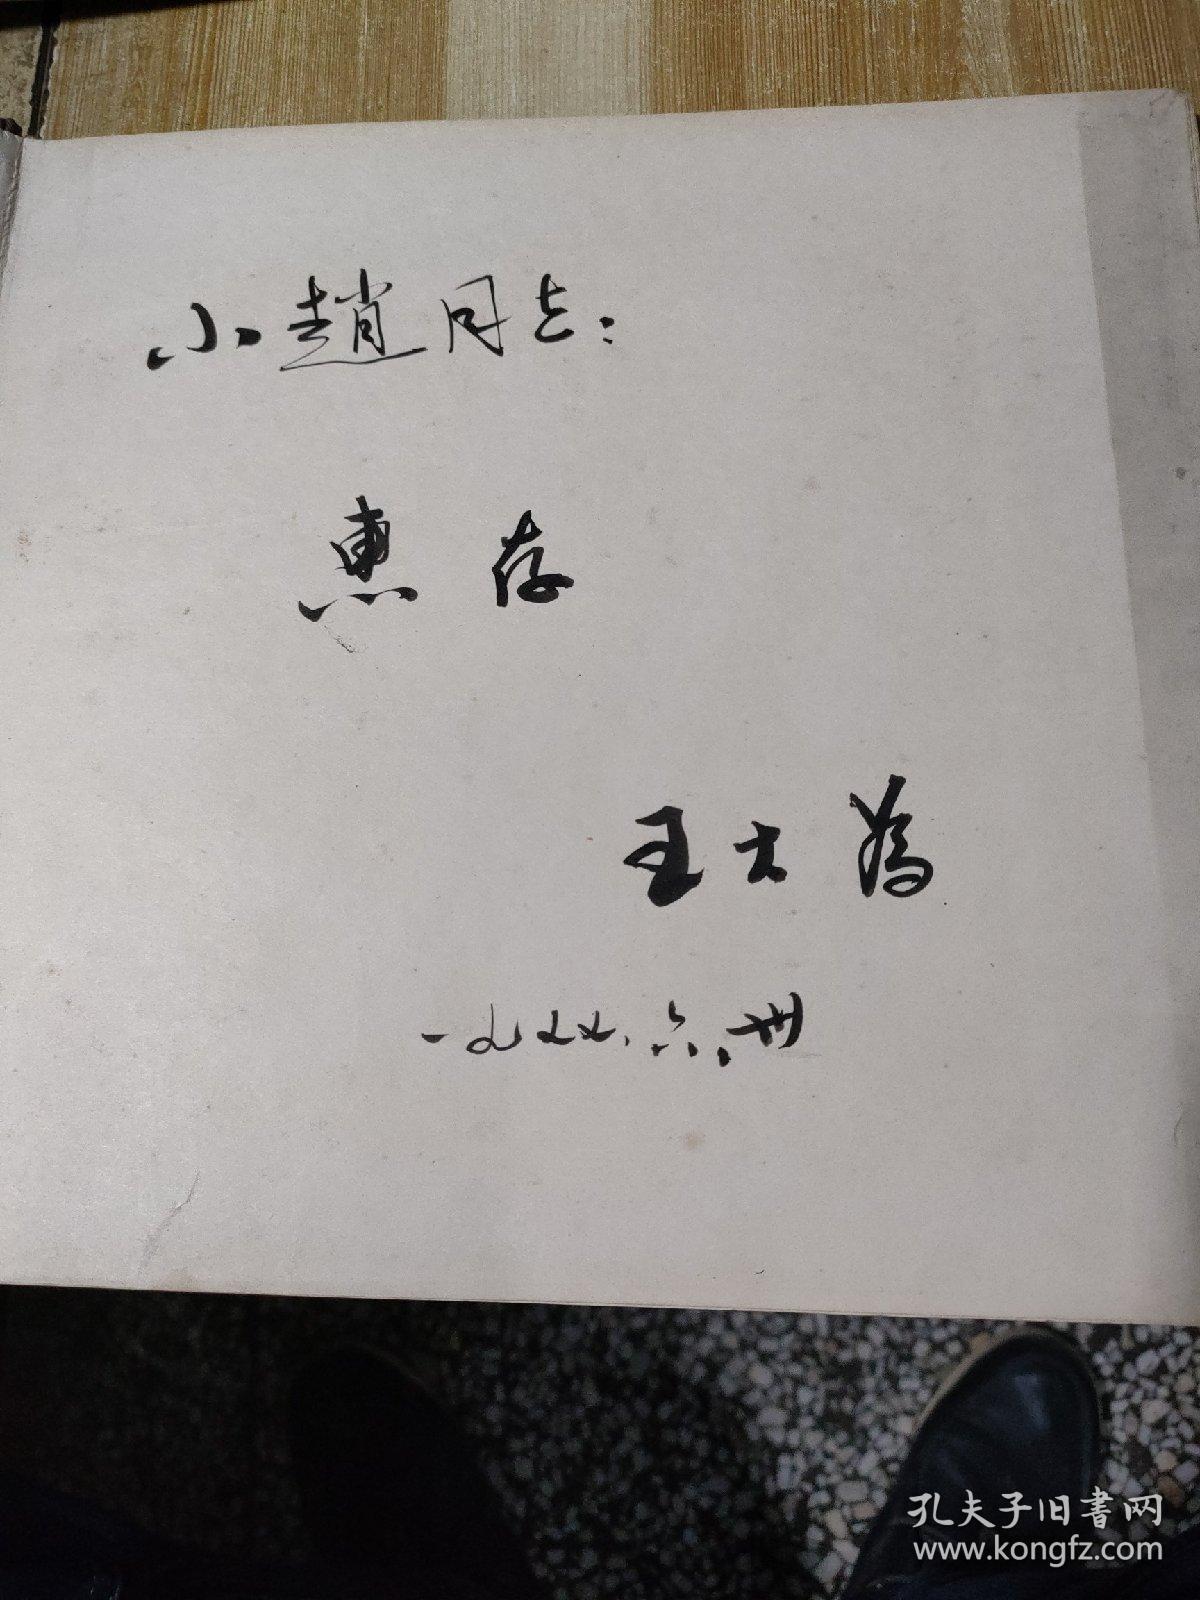 小趙同志：
惠存
王大為
一九
六、卅
孔夫子旧書网
www.kongfz.com